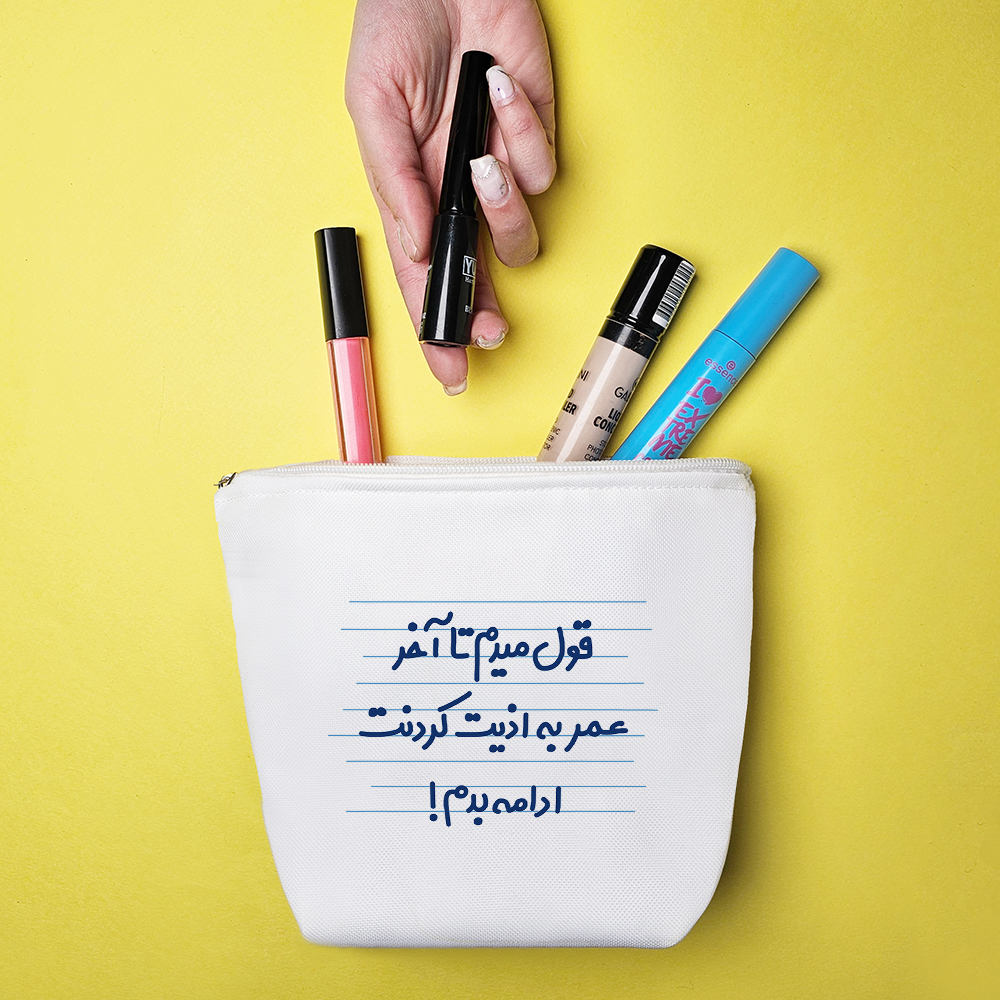 essence
I ♥
EX
TRE
ME
GA
LIQ
CONC
قول میدم تا آخر
عمر به اذیت کردنت
ادامه بدم!